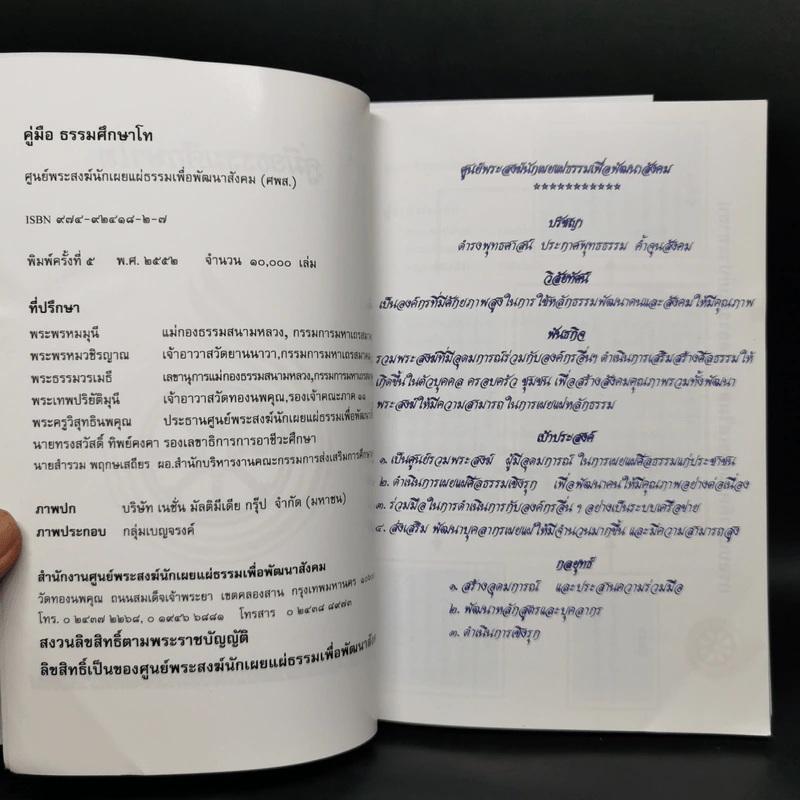 คู่มือ ธรรมศึกษาโท
ศูนย์พระสงฆ์นักเผยแผ่ธรรมเพื่อพัฒนาสังคม (ศพส.)
ISBN ๙๗๔-๙๒๔๑๘-๒-๗
พิมพ์ครั้งที่ ๕ พ.ศ. ๒๕๕๒ จำนวน ๑๐,๐๐๐ เล่ม
ที่ปรึกษา
พระพรหมมุนี แม่กองธรรมสนามหลวง, กรรมการมหาเถรสมาคม
พระพรหมวชิรญาณ เจ้าอาวาสวัดยานนาวา,กรรมการมหาเถรสมาคม
พระธรรมวรเมธี เลขานุการแม่กองธรรมสนามหลวง,กรรมการมหาเถร
พระเทพปริยัติมุนี เจ้าอาวาสวัดทองนพคุณ,รองเจ้าคณะภาค ๑๑
พระครูวิสุทธินพคุณ ประธานศูนย์พระสงฆ์นักเผยแผ่ธรรมเพื่อพัฒนา
นายทรงสวัสดิ์ ทิพย์คงคา รองเลขาธิการการอาชีวะศึกษา
นายสำรวม พฤกษเสถียร ผอ.สำนักบริหารงานคณะกรรมการส่งเสริมการศึกษา
ภาพปก บริษัท เนชั่น มัลติมีเดีย กรุ๊ป จำกัด (มหาชน)
ภาพประกอบ กลุ่มเบญจรงค์
สำนักงานศูนย์พระสงฆ์นักเผยแผ่ธรรมเพื่อพัฒนาสังคม
วัดทองนพคุณ ถนนสมเด็จเจ้าพระยา เขตคลองสาน กรุงเทพมหานคร
โทร. ๐ ๒๔๓๗ ๒๒๖๘, ๐ ๑๙๔๖ ๖๘๘๑ โทรสาร ๐ ๒๔๓๘ ๘๙๗๓
สงวนลิขสิทธิ์ตามพระราชบัญญัติ
ลิขสิทธิ์เป็นของศูนย์พระสงฆ์นักเผยแผ่ธรรมเพื่อพัฒนาสังคม
ศูนย์พระสงฆ์นักเผยแผ่ธรรมเพื่อพัฒนาสังคม
***********
ปรัชญา
ดำรงพุทธศาสน์ ประกาศพุทธธรรม ค้ำจุนสังคม
วิสัยทัศน์
เป็นองค์กรที่มีศักยภาพสูงในการใช้หลักธรรมพัฒนาคนและสังคมให้มีคุณภาพ
พันธกิจ
รวมพระสงฆ์ที่มีอุดมการณ์ร่วมกับองค์กรอื่นๆ ดำเนินการเสริมสร้างศีลธรรมให้
เกิดขึ้นในตัวบุคคล ครอบครัว ชุมชน เพื่อสร้างสังคมคุณภาพรวมทั้งพัฒนา
พระสงฆ์ให้มีความสามารถในการเผยแผ่หลักธรรม
เป้าประสงค์
๑. เป็นศูนย์รวมพระสงฆ์ ผู้มีอุดมการณ์ ในการเผยแผ่ศีลธรรมแก่ประชาชน
๒. ดำเนินการเผยแผ่ศีลธรรมเชิงรุก เพื่อพัฒนาคนให้มีคุณภาพอย่างต่อเนื่อง
๓. ร่วมมือในการดำเนินการกับองค์กรอื่น ๆ อย่างเป็นระบบเครือข่าย
๔. ส่งเสริม พัฒนาบุคลากรเผยแผ่ให้มีจำนวนมากขึ้น และมีความสามารถสูง
กลยุทธ์
๑. สร้างอุดมการณ์ และประสานความร่วมมือ
๒. พัฒนาหลักสูตรและบุคลากร
๓. ดำเนินการเชิงรุก